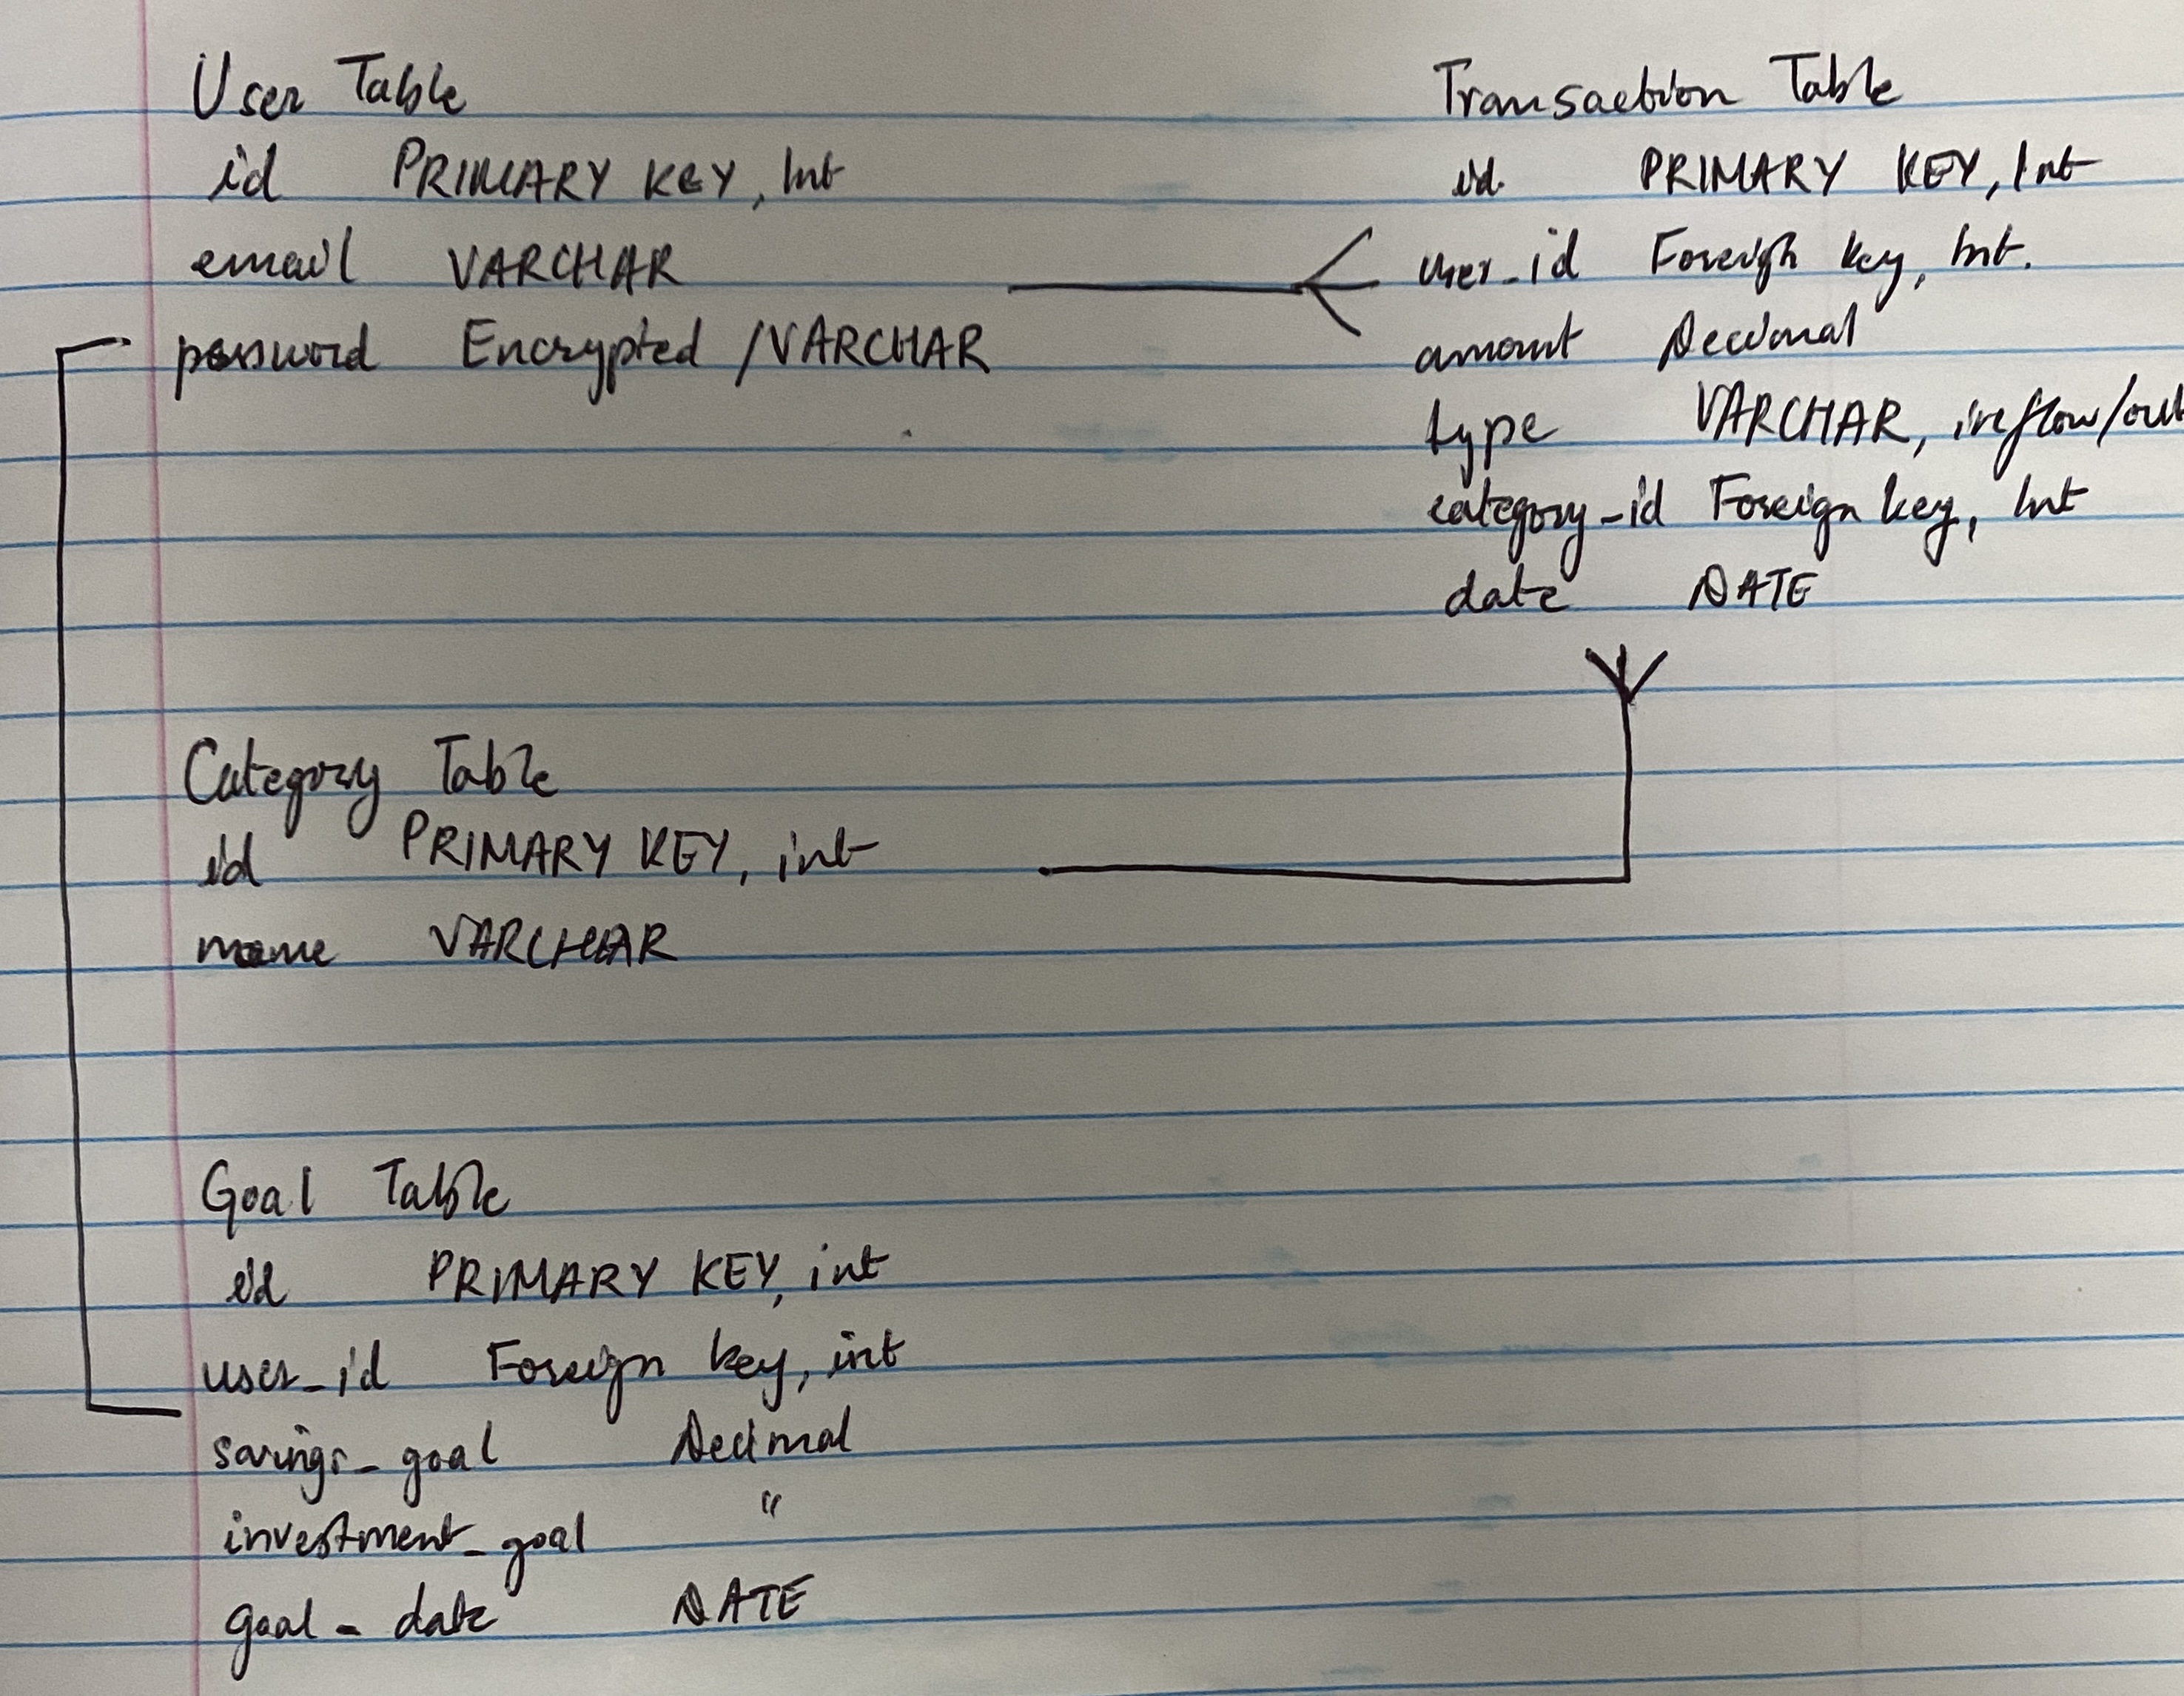 User Table
id PRIMARY KEY, Int
email VARCHAR
password Encrypted /VARCHAR
Transaction Table
id PRIMARY KEY, Int
user_id Foreign key, Int.
amount Decimal
type VARCHAR, inflow/out
category_id Foreign key, Int
date DATE
Category Table
id PRIMARY KEY, int
name VARCHAR
Goal Table
id PRIMARY KEY, int
user_id Foreign key, int
savings_goal Decimal
investment_goal "
goal_date DATE